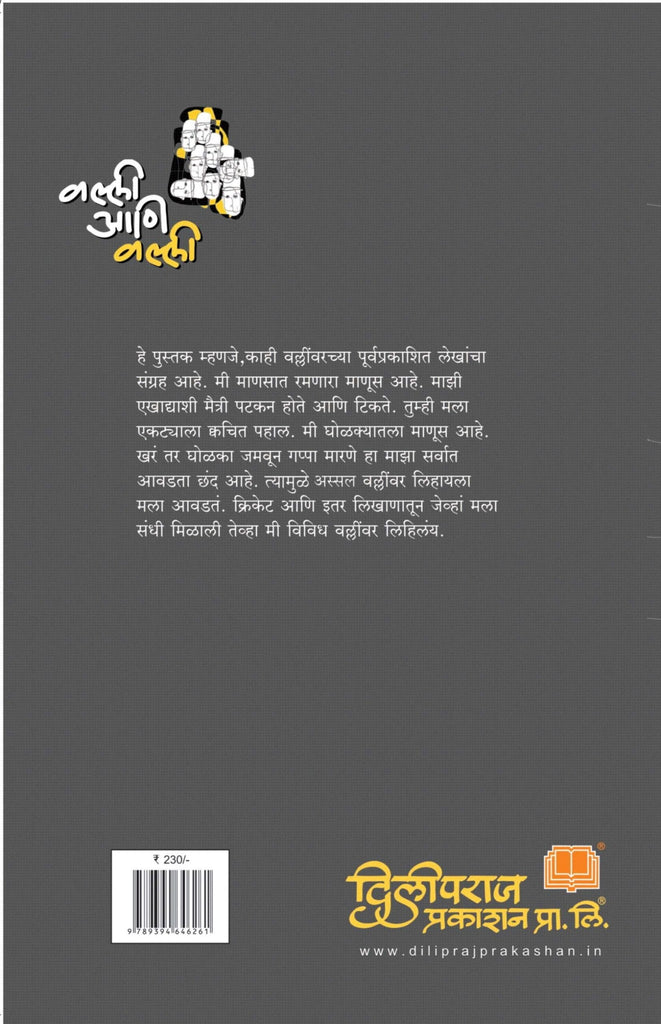 वल्ली
आणि
वल्ली
हे पुस्तक म्हणजे,काही वल्लींवरच्या पूर्वप्रकाशित लेखांचा
संग्रह आहे. मी माणसात रमणारा माणूस आहे. माझी
एखाद्याशी मैत्री पटकन होते आणि टिकते. तुम्ही मला
एकट्याला क्वचित पहाल. मी घोळक्यातला माणूस आहे.
खरं तर घोळका जमवून गप्पा मारणे हा माझा सर्वात
आवडता छंद आहे. त्यामुळे अस्सल वल्लींवर लिहायला
मला आवडतं. क्रिकेट आणि इतर लिखाणातून जेव्हां मला
संधी मिळाली तेव्हा मी विविध वल्लींवर लिहिलंय.
₹ 230/-
9 789394 646261
®
दिलीपराज
प्रकाशन प्रा. लि.®
www.diliprajprakashan.in